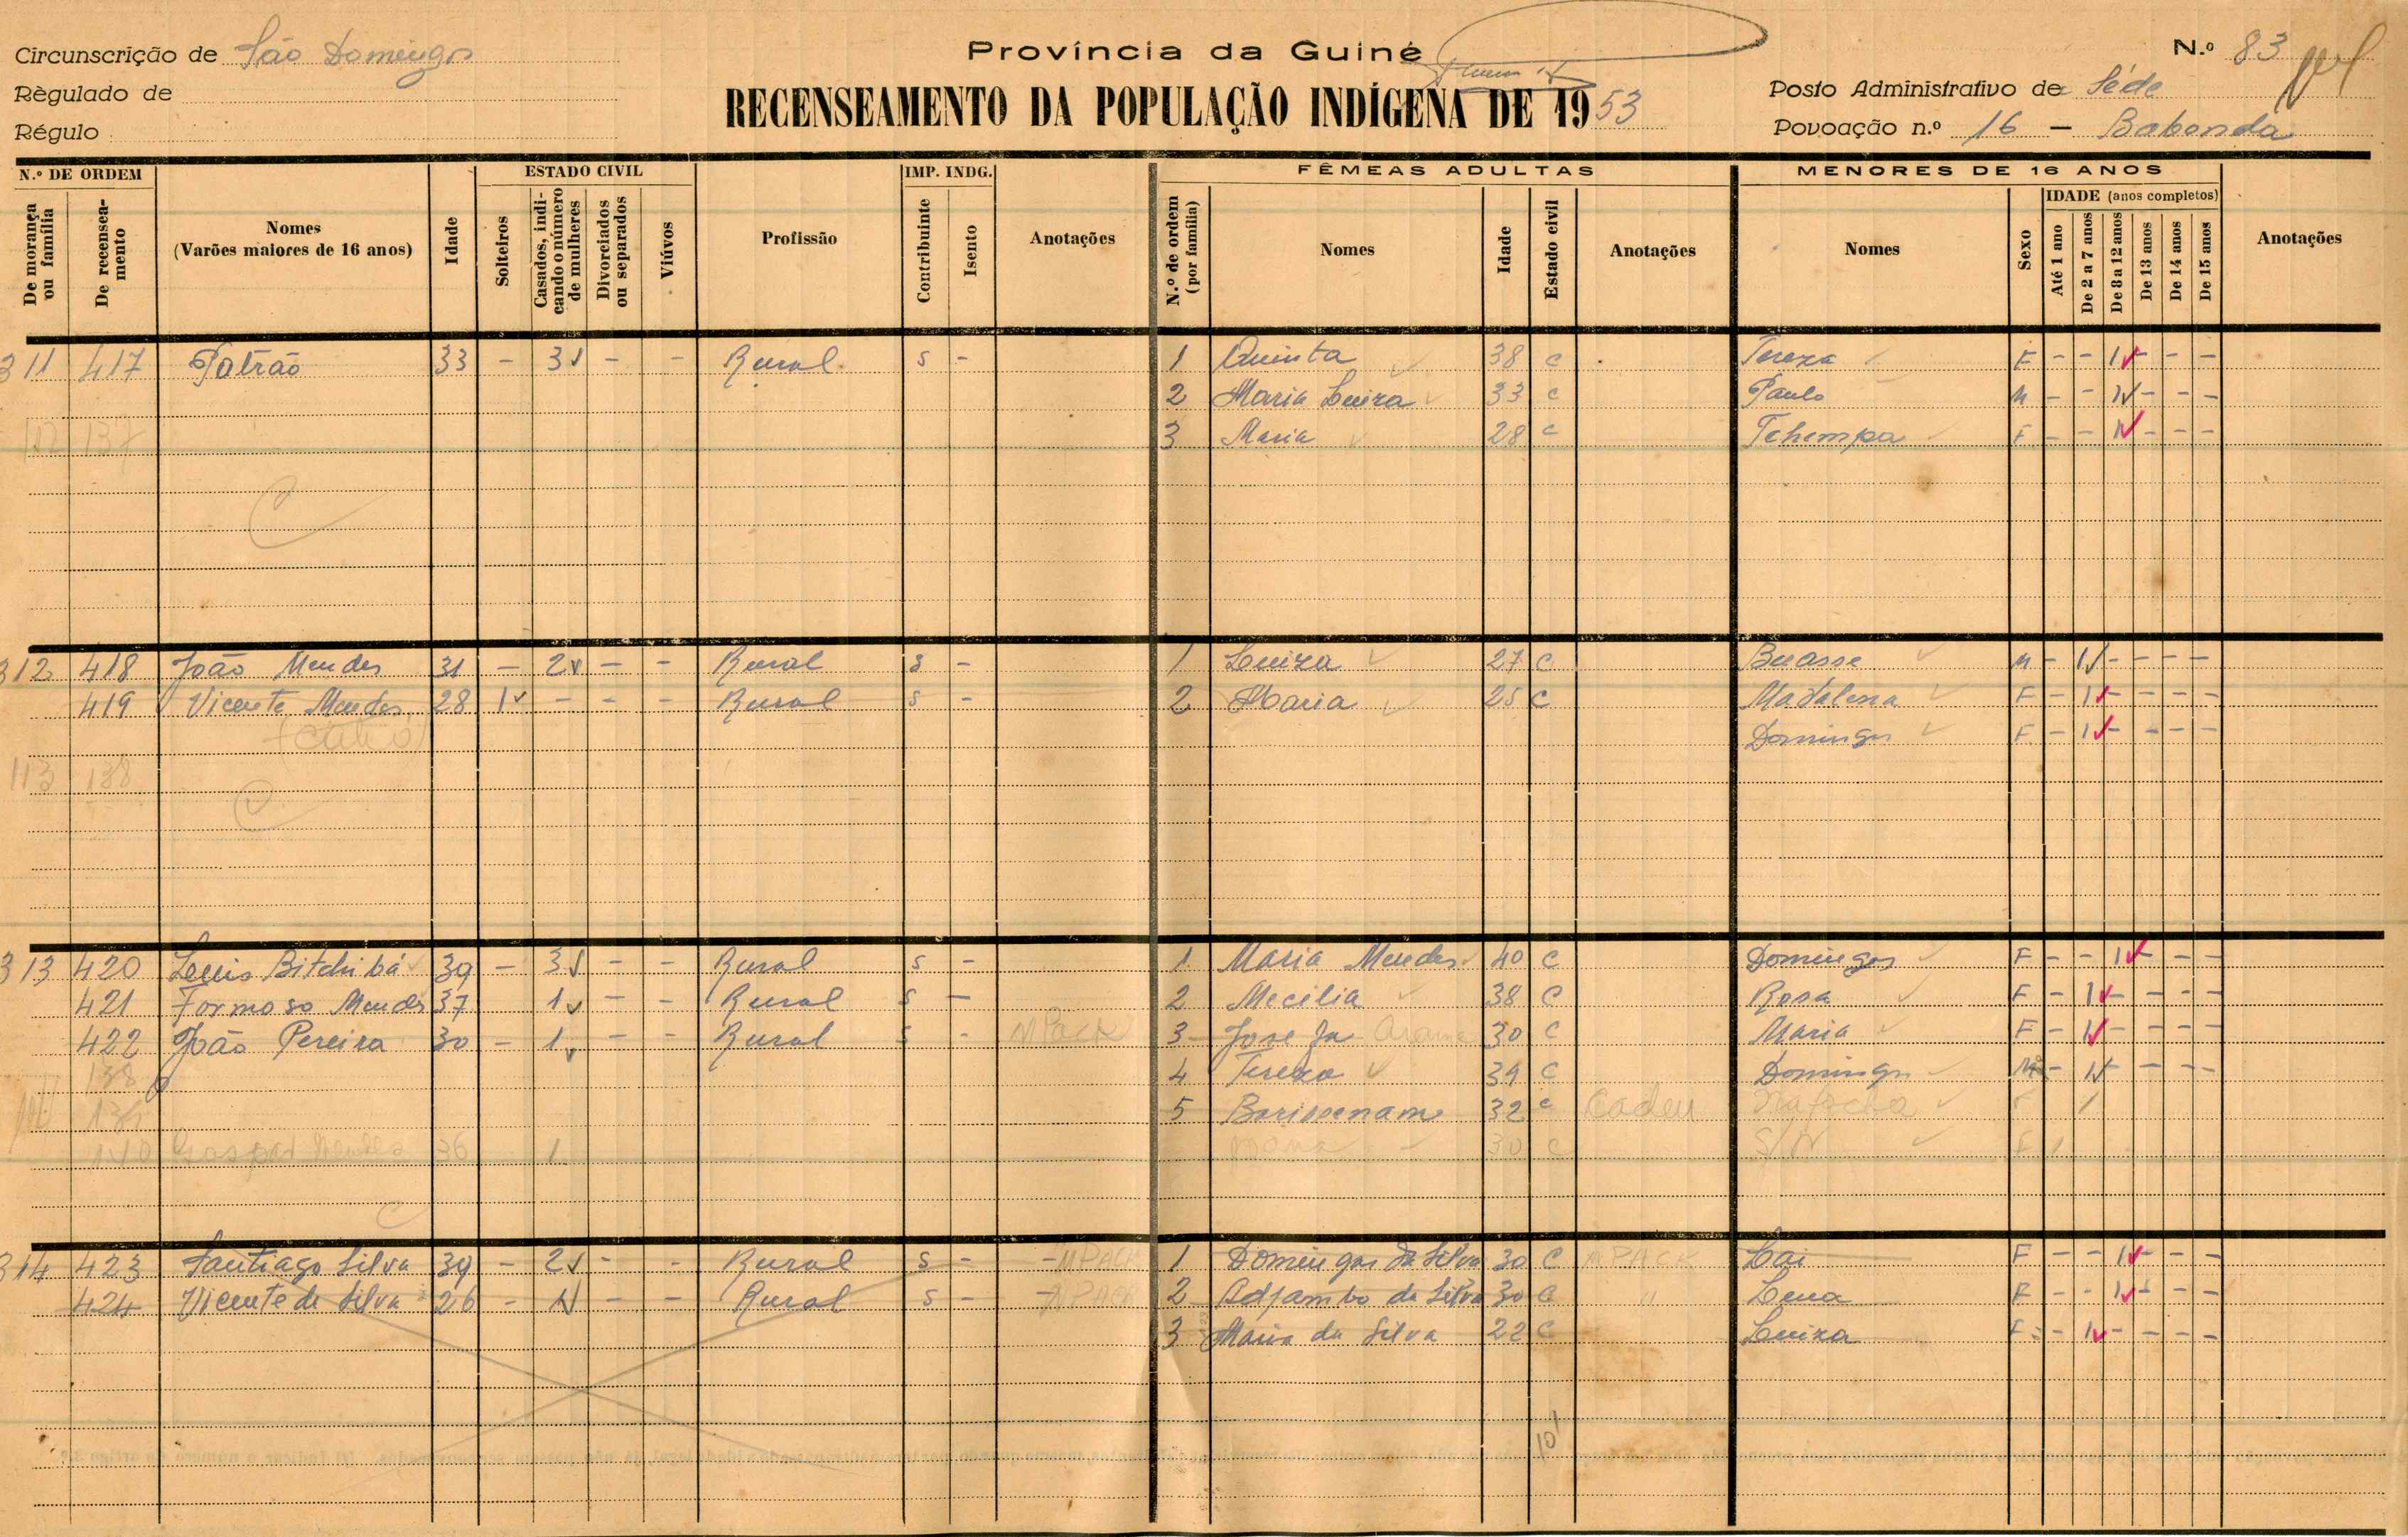 Circunscrição de São Domingos
Règulado de
Régulo
Província da Guiné
RECENSEAMENTO DA POPULAÇÃO INDÍGENA DE 1953
N.º 83
Posto Administrativo de Séde
Povoação n.º 16 - Babonda
N.º DE ORDEM
De morança ou família
De recenseamento
Nomes (Varões maiores de 16 anos)
Idade
ESTADO CIVIL
Solteiros
Casados, indicando o número de mulheres
Divorciados ou separados
Viúvos
Profissão
IMP. INDG.
Contribuinte
Isento
Anotações
FÊMEAS ADULTAS
N.º de ordem (por família)
Nomes
Idade
Estado civil
Anotações
MENORES DE 16 ANOS
Nomes
Sexo
IDADE (anos completos)
Até 1 ano
De 2 a 7 anos
De 8 a 12 anos
De 13 anos
De 14 anos
De 15 anos
Anotações
311 417 Patrão 33 - 3 - - Rural s - 1 Quinta 38 c Tereza F - - 1 - - -
2 Maria Luiza 33 c Paulo M - - 1 - - -
3 Maria 28 c Tchempa F - - 1 - - -
112 137
312 418 João Mendes 31 - 2 - - Rural s - 1 Luiza 27 c Buasse M - 1 - - - -
419 Vicente Mendes 28 1 - - - Rural s - 2 Maria 25 c Madalena F - 1 - - - -
Domingos F - 1 - - - -
113 138
313 420 Luis Bitchibá 39 - 3 - - Rural s - 1 Maria Mendes 40 c Domingos F - - 1 - - -
421 Formoso Mendes 37 1 - - Rural s - 2 Mecilia 38 c Rosa F - 1 - - - -
422 João Pereira 30 - 1 - - Rural s - MPACK 3 Josefa 30 c Maria F - 1 - - - -
138 4 Tereza 39 c Domingos M - 1 - - - -
5 Borissenam 32 c Cadeu F 1
140 Gaspar Mendes 36 1 30 c S/N F 1
314 423 Santiago Silva 39 - 2 - - Rural s - - MPACK 1 Domingas da Silva 30 c MPACK Cai F - - 1 - - -
424 Vicente da Silva 26 - 1 - - Rural s - - MPACK 2 Adjambo da Silva 30 c " Lena F - - 1 - - -
3 Maria da Silva 22 c Luiza F - 1 - - - -
101